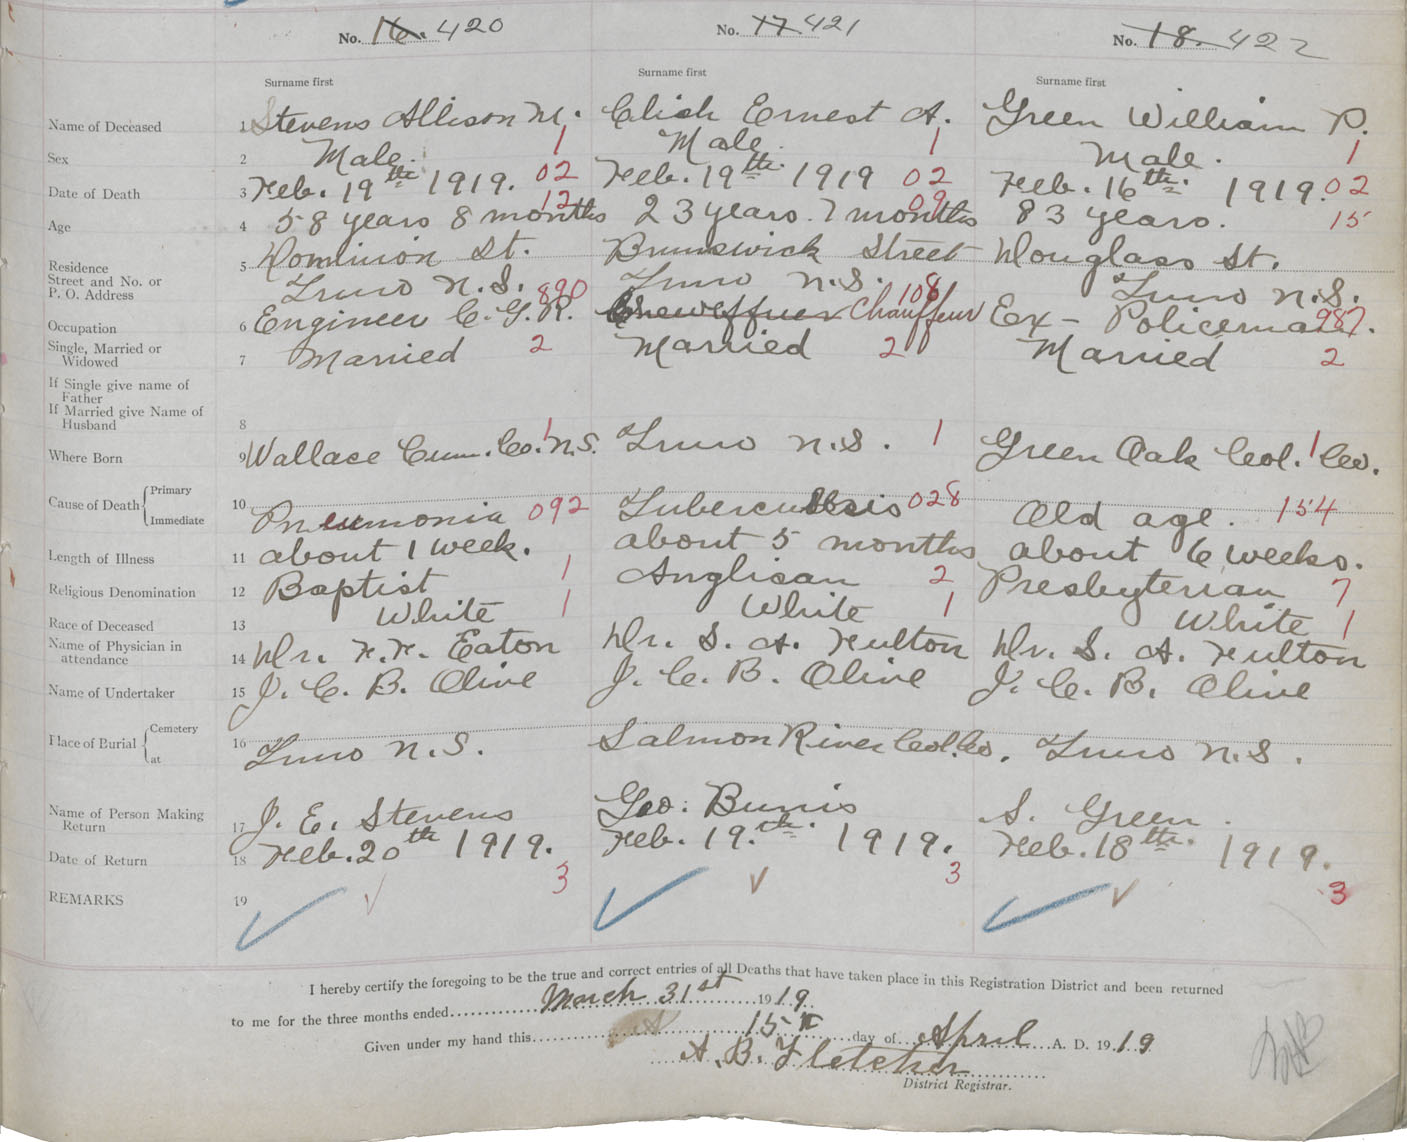 No. 16. 420 No. 17 421 No. 18. 422
Surname first Surname first Surname first
Name of Deceased 1 Stevens Allison M. Clish Ernest A. Green William P.
Sex 2 Male. 1 Male 1 Male. 1
Date of Death 3 Feb. 19th 1919. 02 Feb. 19th 1919 02 Feb. 16th 1919. 02
Age 4 58 years 8 months 12 23 years. 7 months 09 83 years. 15
Residence 5 Dominion St. Brunswick Street Douglass St.
Street and No. or
P. O. Address Truro N.S. Truro N.S. Truro N.S.
Occupation 6 Engineer C.G.R. 890 Chauffeur 108 Ex-Policeman. 987
Single, Married or
Widowed 7 Married 2 Married 2 Married 2
If Single give name of
Father
If Married give Name of
Husband 8
Where Born 9 Wallace Cum. Co. N.S. 1 Truro N.S. 1 Green Oak Col. Co. 1
Cause of Death { Primary
Immediate 10 Pneumonia 092 Tuberculosis 028 Old age. 154
Length of Illness 11 about 1 week. about 5 months about 6 weeks.
Religious Denomination 12 Baptist 1 Anglican 2 Presbyterian 7
Race of Deceased 13 White 1 White 1 White 1
Name of Physician in
attendance 14 Dr. F.F. Eaton Dr. S. A. Fulton Dr. S. A. Fulton
Name of Undertaker 15 J. C. B. Olive J. C. B. Olive J. C. B. Olive
Place of Burial { Cemetery
at 16 Truro N.S. Salmon River Col. Co. Truro N.S.
Name of Person Making
Return 17 J. E. Stevens Geo. S. Green.
Date of Return 18 Feb. 20th 1919. Feb. 19.th 1919. Feb. 18th 1919.
3 3 3
REMARKS 19
I hereby certify the foregoing to be the true and correct entries of all Deaths that have taken place in this Registration District and been returned
to me for the three months ended March 31st 1919
Given under my hand this 15th day of April A. D. 1919
A. B. Fletcher
District Registrar.